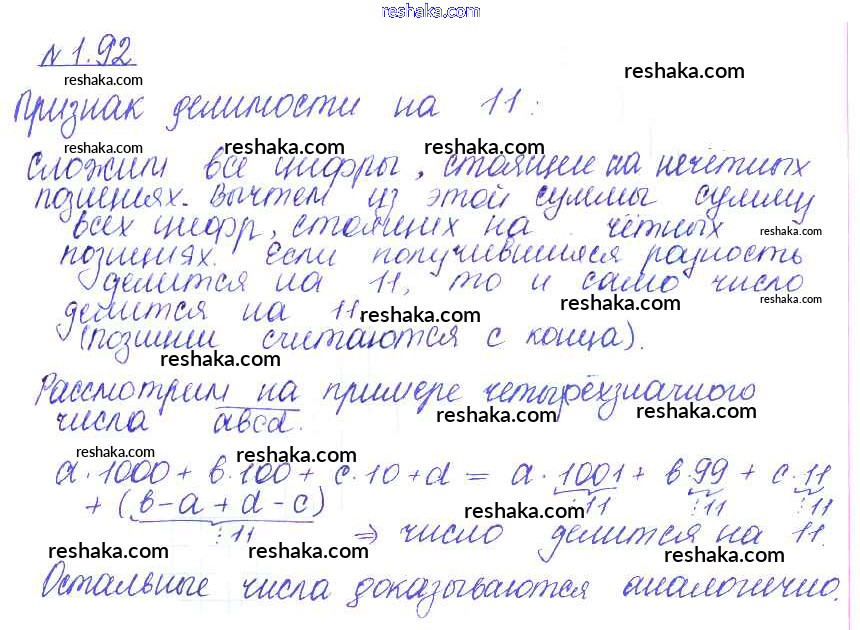 reshaka.com
№ 1.92
reshaka.com reshaka.com
Признак делимости на 11:
reshaka.com reshaka.com reshaka.com
Сложим все цифры, стоящие на нечетных
позициях. Вычтем из этой суммы сумму
всех цифр, стоящих на чётных reshaka.com
позициях. Если получившиеся разность
делится на 11, то и само число
reshaka.com reshaka.com
делится на 11 reshaka.com
(позиции считаются с конца).
reshaka.com
Рассмотрим на примере четырёхзначного
числа abcd. reshaka.com reshaka.com
reshaka.com reshaka.com
a·1000 + b·100 + c·10 + d = a·1001 + b·99 + c·11
+ (b-a+d-c) ⋮11 ⋮11 ⋮11
reshaka.com
⋮11 ⇒ число делится на 11.
reshaka.com reshaka.com reshaka.com
Остальные числа доказываются аналогично.